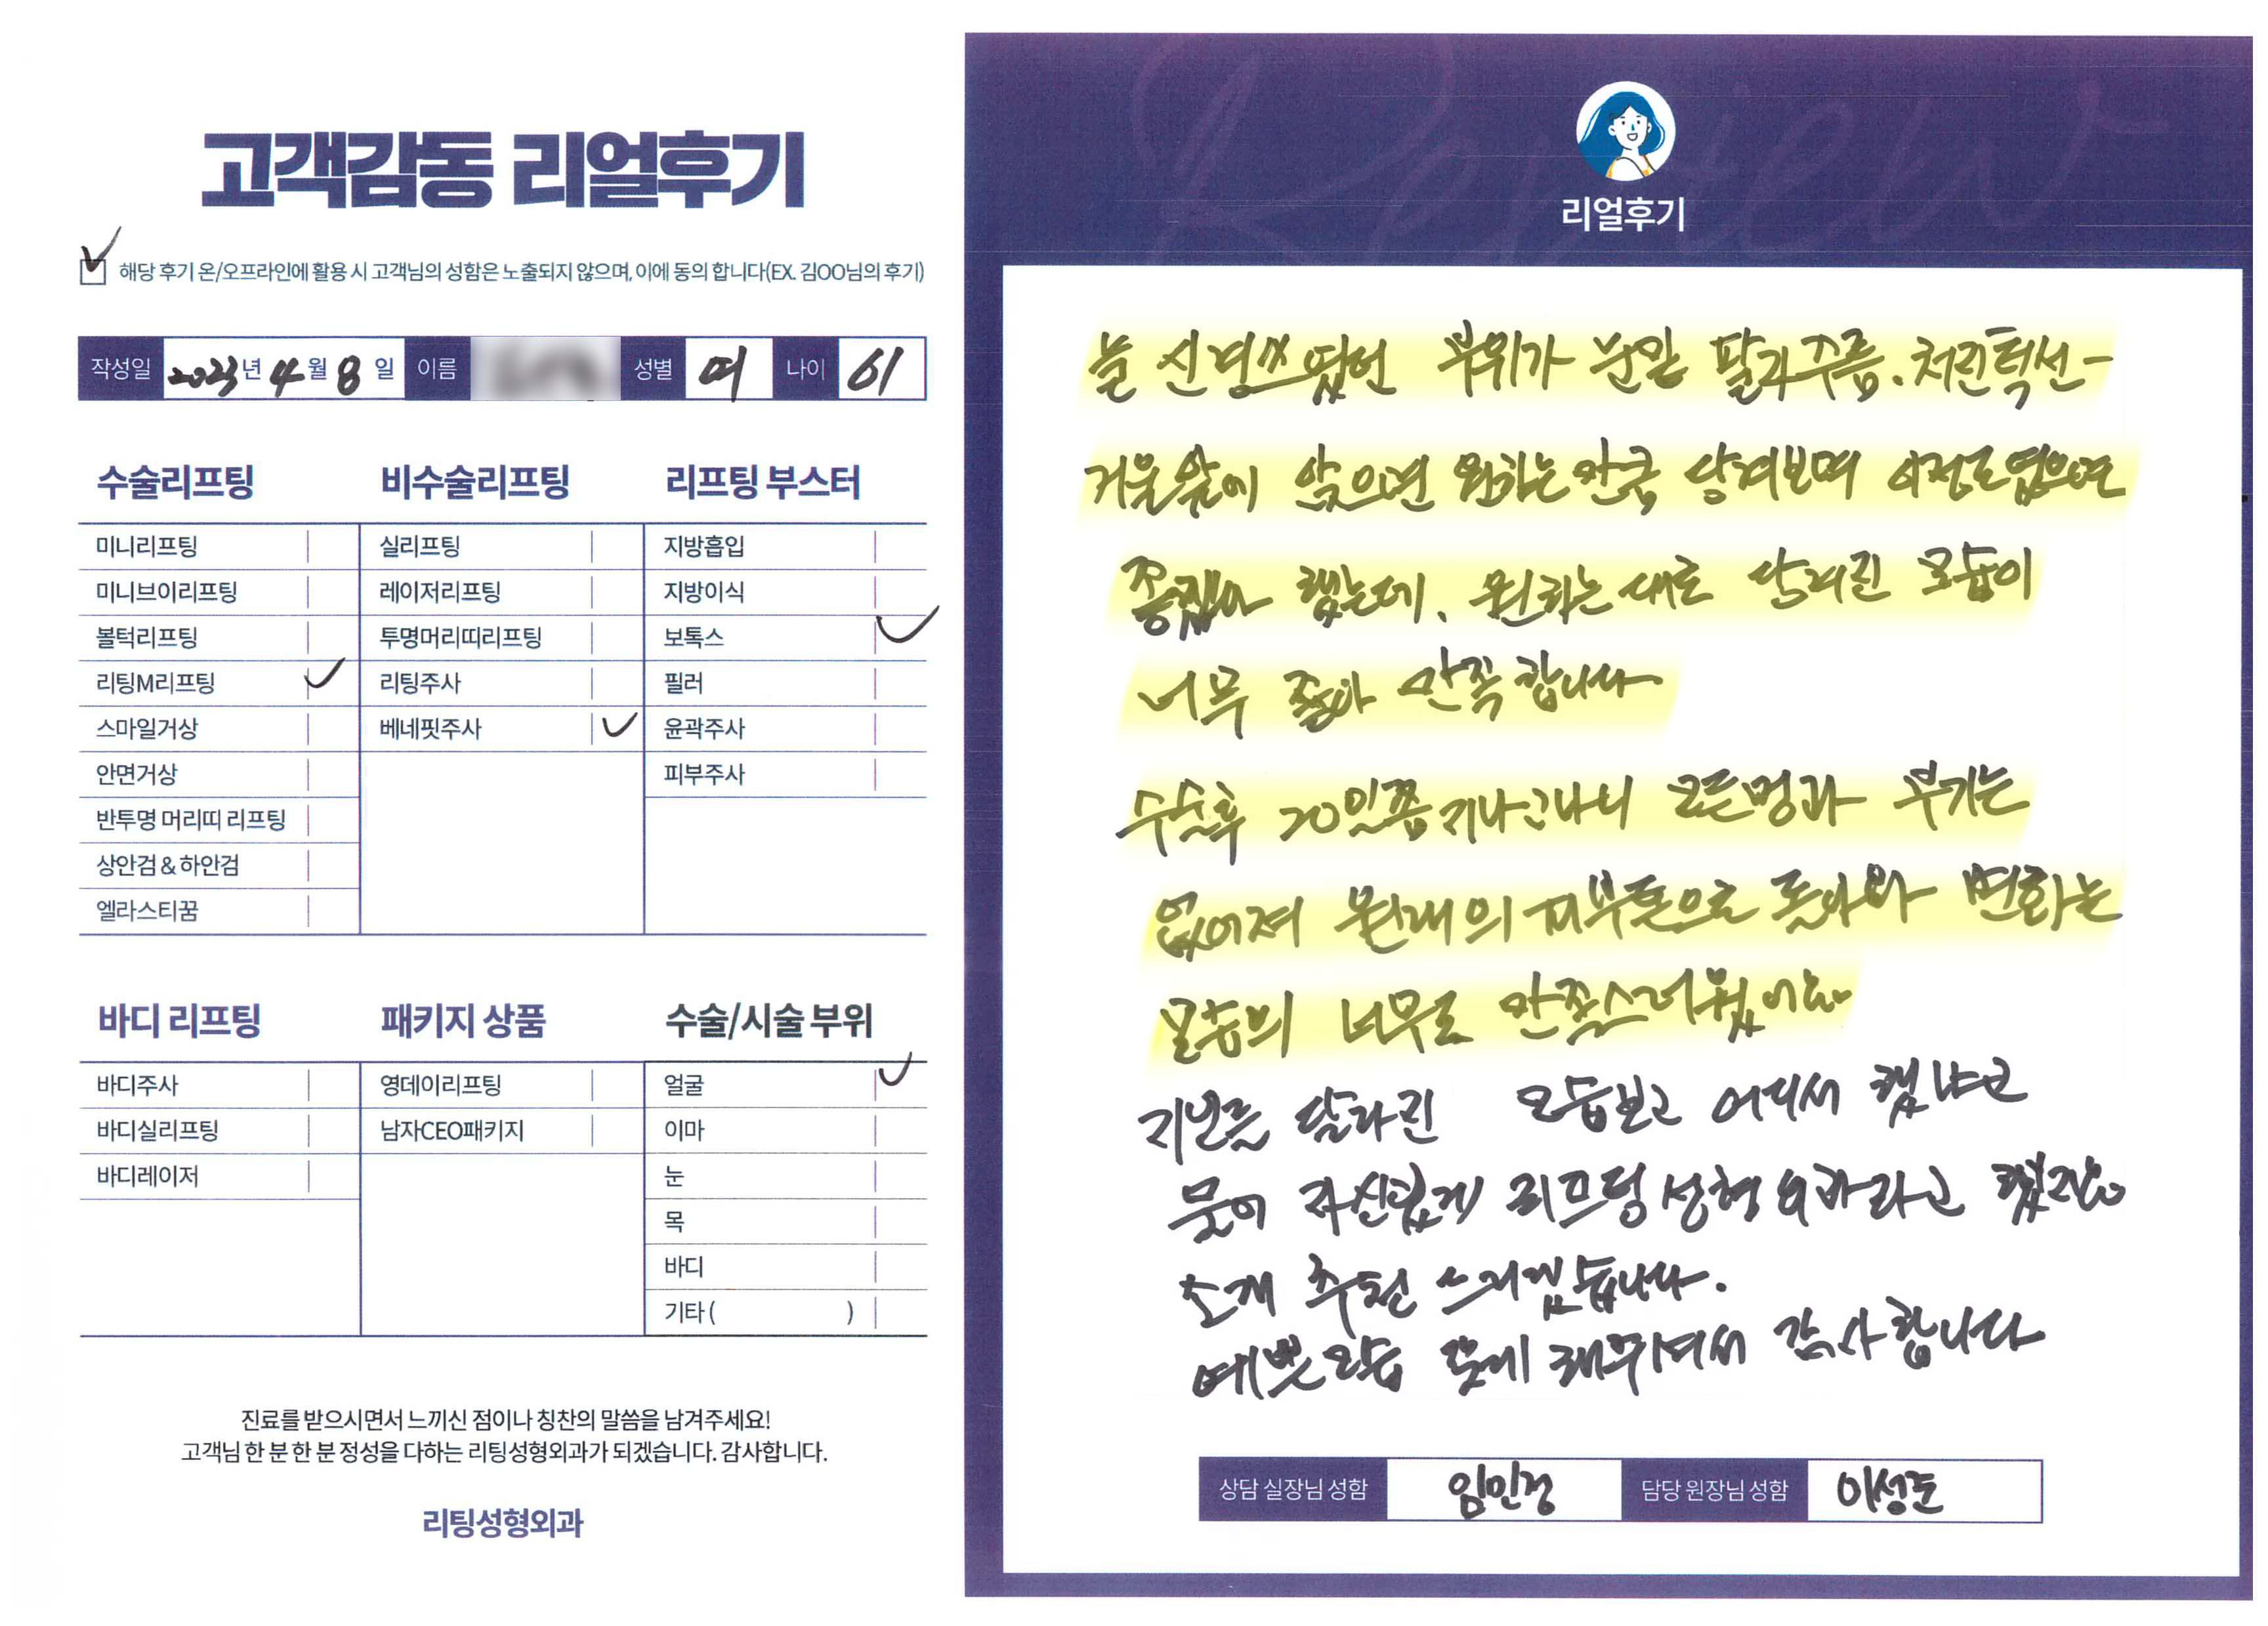 고객감동 리얼후기
해당 후기 온/오프라인에 활용 시 고객님의 성함은 노출되지 않으며, 이에 동의 합니다(EX. 김OO님의 후기)
작성일 2023년 4월 8일 이름 성별 여 나이 61
수술리프팅
미니리프팅
미니브이리프팅
볼턱리프팅
리팅M리프팅
스마일거상
안면거상
반투명 머리띠 리프팅
상안검 & 하안검
엘라스티꿈
비수술리프팅
실리프팅
레이저리프팅
투명머리띠리프팅
리팅주사
베네핏주사
리프팅 부스터
지방흡입
지방이식
보톡스
필러
윤곽주사
피부주사
바디 리프팅
바디주사
바디실리프팅
바디레이저
패키지 상품
영데이리프팅
남자CEO패키지
수술/시술 부위
얼굴
이마
눈
목
바디
기타 ( )
진료를 받으시면서 느끼신 점이나 칭찬의 말씀을 남겨주세요!
고객님 한 분 한 분 정성을 다하는 리팅성형외과가 되겠습니다. 감사합니다.
리팅성형외과
Review
리얼후기
늘 신경쓰였던 부위가 눈밑 팔자주름. 처진턱선-
거울앞에 앉으면 원하는만큼 당겨보며 이정도였으면
좋겠다 했는데. 원하는대로 당겨진 모습이
너무 좋아 만족합니다
수술후 20일쯤 지나고나니 모든멍과 부기는
없어져 원래의 피부톤으로 돌아와 변화는
모습의 너무도 만족스러웠어요
지인들 달라진 모습보고 어디서 했냐고
물어 자신있게 리프팅성형외과라고 했지요
소개 추천 드리겠습니다.
예쁜모습 찾게 해주셔서 감사합니다
상담 실장님 성함 임민경 담당 원장님 성함 이성준